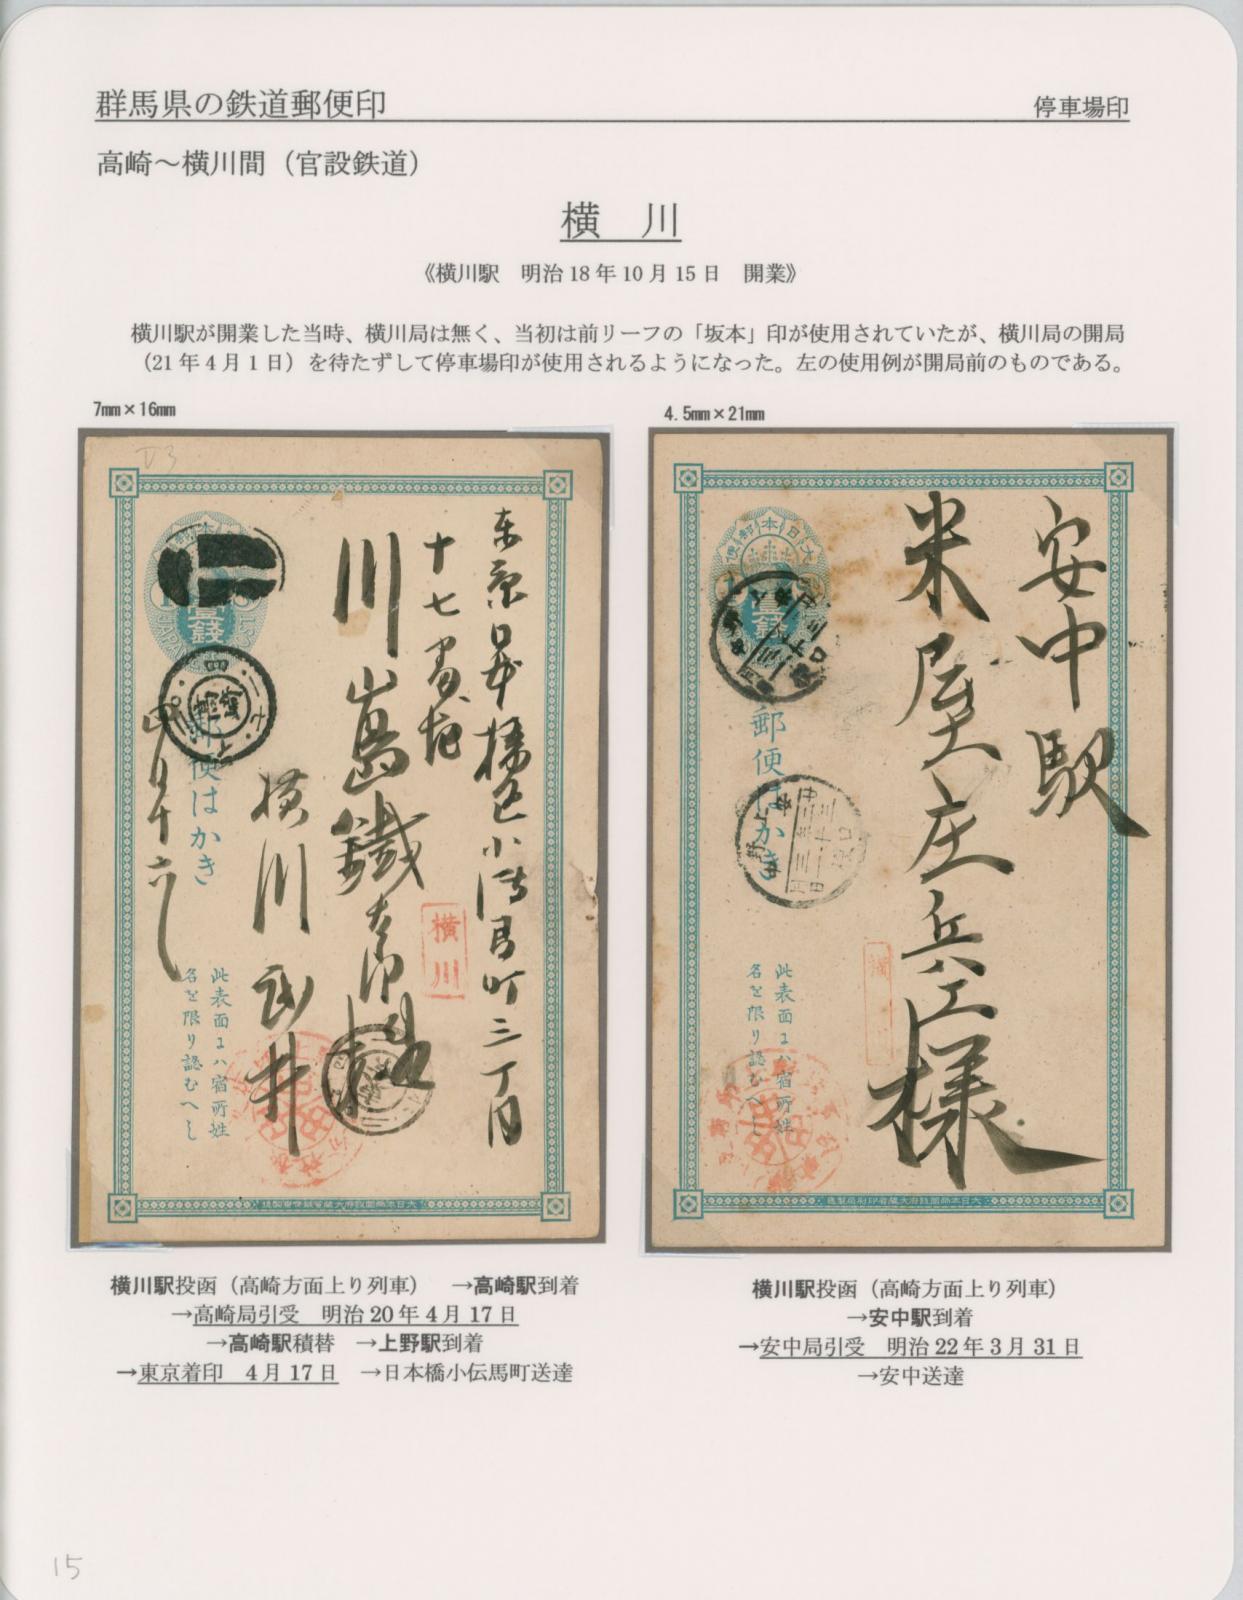 群馬県の鉄道郵便印
停車場印
高崎～横川間（官設鉄道）
横 川
《横川駅 明治18年10月15日 開業》
横川駅が開業した当時、横川局は無く、当初は前リーフの「坂本」印が使用されていたが、横川局の開局
（21年4月1日）を待たずして停車場印が使用されるようになった。左の使用例が開局前のものである。
7mm×16mm
東京日本橋区小伝馬町三丁目
十七番地
川島鐵太郎様
横川
横川
武井
壹錢
郵便はかき
此表面ニハ宿所姓
名を限り認むへし
横川駅投函（高崎方面上り列車） →高崎駅到着
→高崎局引受 明治20年4月17日
→高崎駅積替 →上野駅到着
→東京着印 4月17日 →日本橋小伝馬町送達
4.5mm×21mm
安中駅
米屋庄兵エ様
大日本郵便
壹錢
郵便はかき
此表面ニハ宿所姓
名を限り認むへし
横川駅投函（高崎方面上り列車）
→安中駅到着
→安中局引受 明治22年3月31日
→安中送達
15